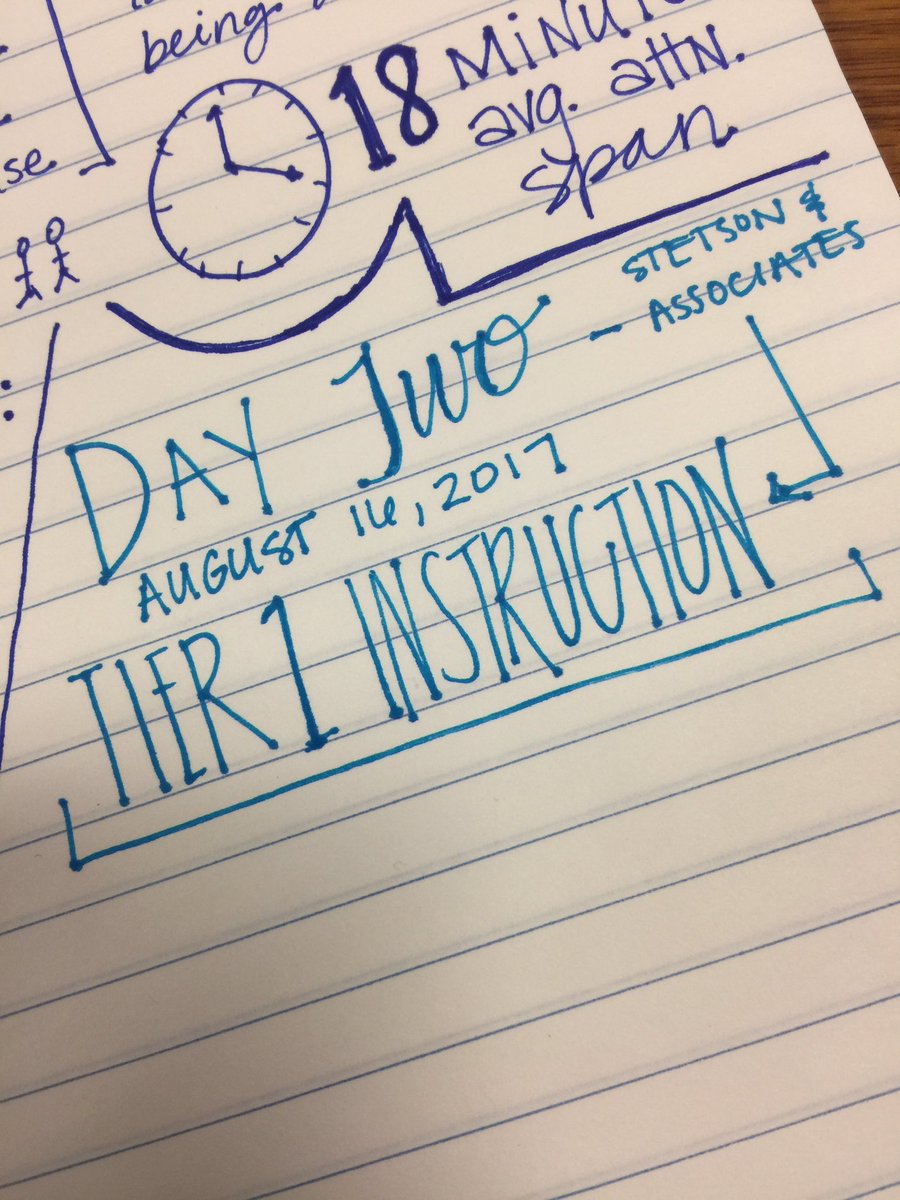 being.
se.
18 MINUTE
avg. attn.
span
DAY Two - STETSON &
ASSOCIATES
AUGUST 16, 2017
TIER 1 INSTRUCTION